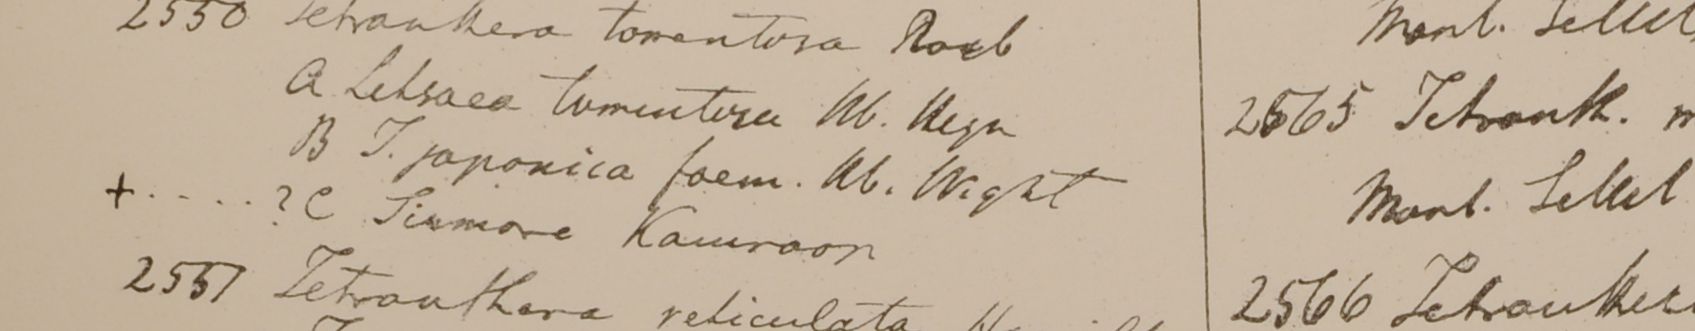 2550 Tetranthera tomentosa Roxb
A Letsaea tomentosa Hb. Heyn
B T. japonica foem. Hb. Wight
+ . . . . . ? C Sirmore Kamraon
2551 Tetranthera reticulata
Mont. Sillet
2565 Tetranth.
Mont. Sillet
2566